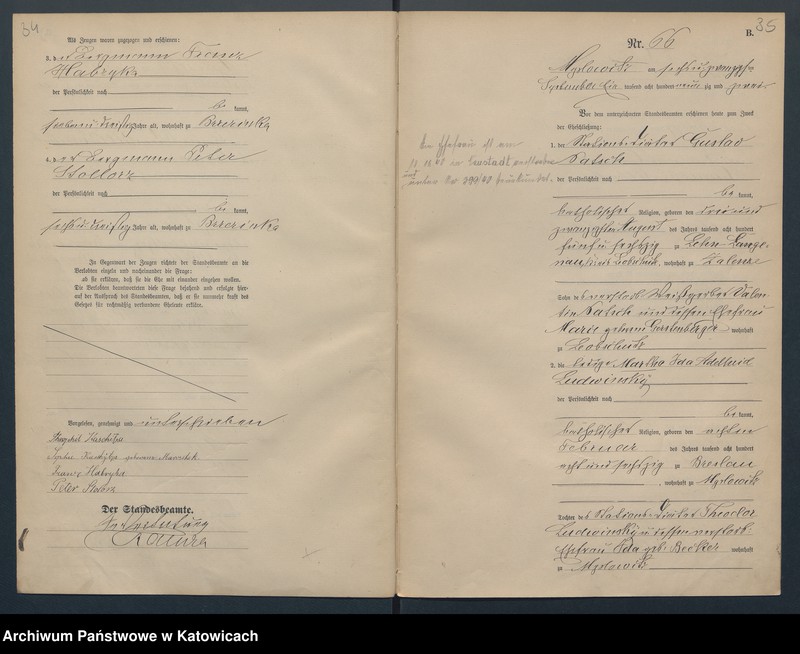 34
Als Zeugen waren zugezogen und erschienen:
3. der Bergmann Franz
Habryka
der Persönlichkeit nach
be kannt,
siebenunddreißig Jahre alt, wohnhaft zu Brzezinka
4. der Bergmann Peter
Stollorz
der Persönlichkeit nach
be kannt,
sechsunddreißig Jahre alt, wohnhaft zu Brzezinka
In Gegenwart der Zeugen richtete der Standesbeamte an die
Verlobten einzeln und nacheinander die Frage:
ob sie erklären, daß sie die Ehe mit einander eingehen wollen.
Die Verlobten beantworteten diese Frage bejahend und erfolgte hier-
auf der Ausspruch des Standesbeamten, daß er sie nunmehr kraft des
Gesetzes für rechtmäßig verbundene Eheleute erkläre.
Vorgelesen, genehmigt und unterschrieben
Franz Habryka
Peter
Der Standesbeamte.
In Vertretung
35
B.
Nr. 66
Myslowitz am sechsundzwanzigsten
September tausend acht hundert neunzig und zwei
Vor dem unterzeichneten Standesbeamten erschienen heute zum Zweck
der Eheschließung:
1. der Stations-Diätar Gustav
Patsch
der Persönlichkeit nach
be kannt,
katholischer Religion, geboren den dreiund
zwanzigsten August des Jahres tausend acht hundert
fünfundsechzig zu
wohnhaft zu Zalenze
Sohn des verstorb. Weißgerber Valen
tin Patsch und dessen Ehefrau
Marie geborene Gerstenberger wohnhaft
zu Leobschütz
2. die ledige Martha Ida Adelheid
Ludwinsky
der Persönlichkeit nach
be kannt,
katholischer Religion, geboren den achten
Februar des Jahres tausend acht hundert
acht und sechzig zu Breslau
, wohnhaft zu Myslowitz
Tochter des Stations-Diätar Theodor
Ludwinsky u dessen verstorb.
Ehefrau Ida geb. Becker wohnhaft
zu Myslowitz
Die Ehefrau ist am
Archiwum Państwowe w Katowicach